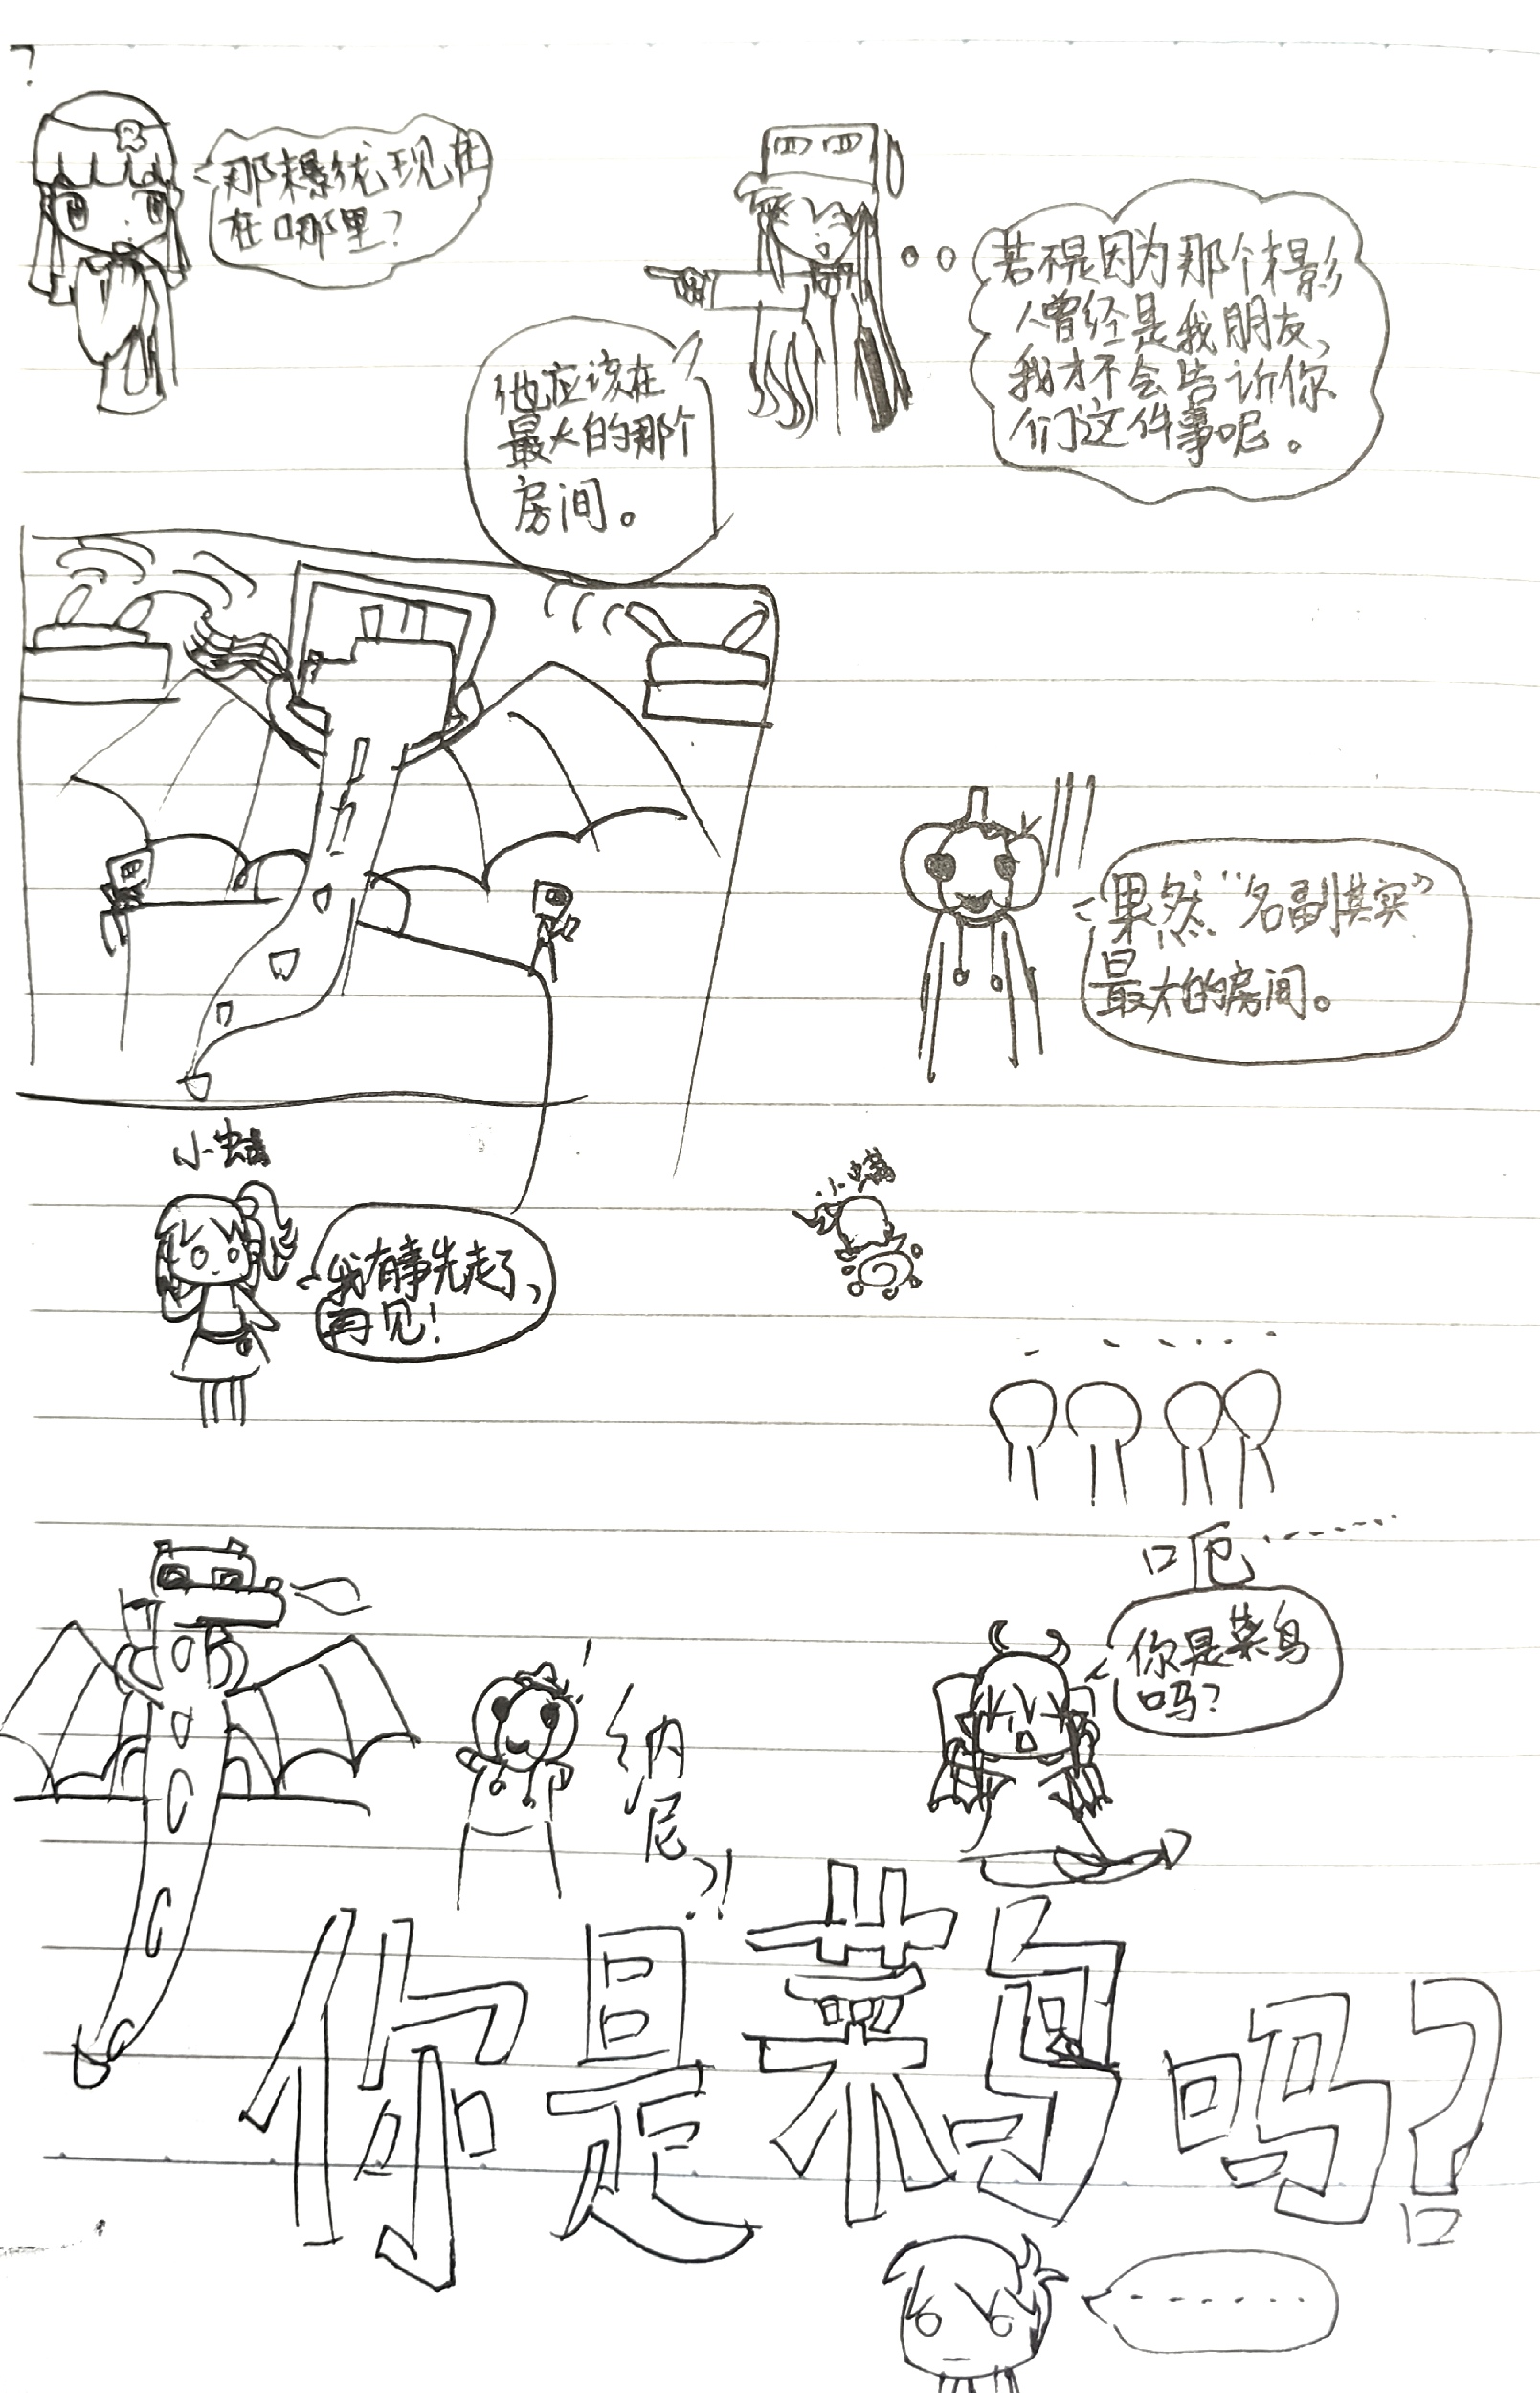 ?
那末影龙现在
在哪里?
四 四
若不是因为那个末影
人曾经是我朋友,
我才不会告诉你
们这件事呢。
他应该在
最大的那个
房间。
果然“名副其实”
最大的房间。
小蛙
小螨
我有事先走了,
再见!
呃……
你是菜鸟
吗?
纳
尼
?!
你是菜鸟吗?
……